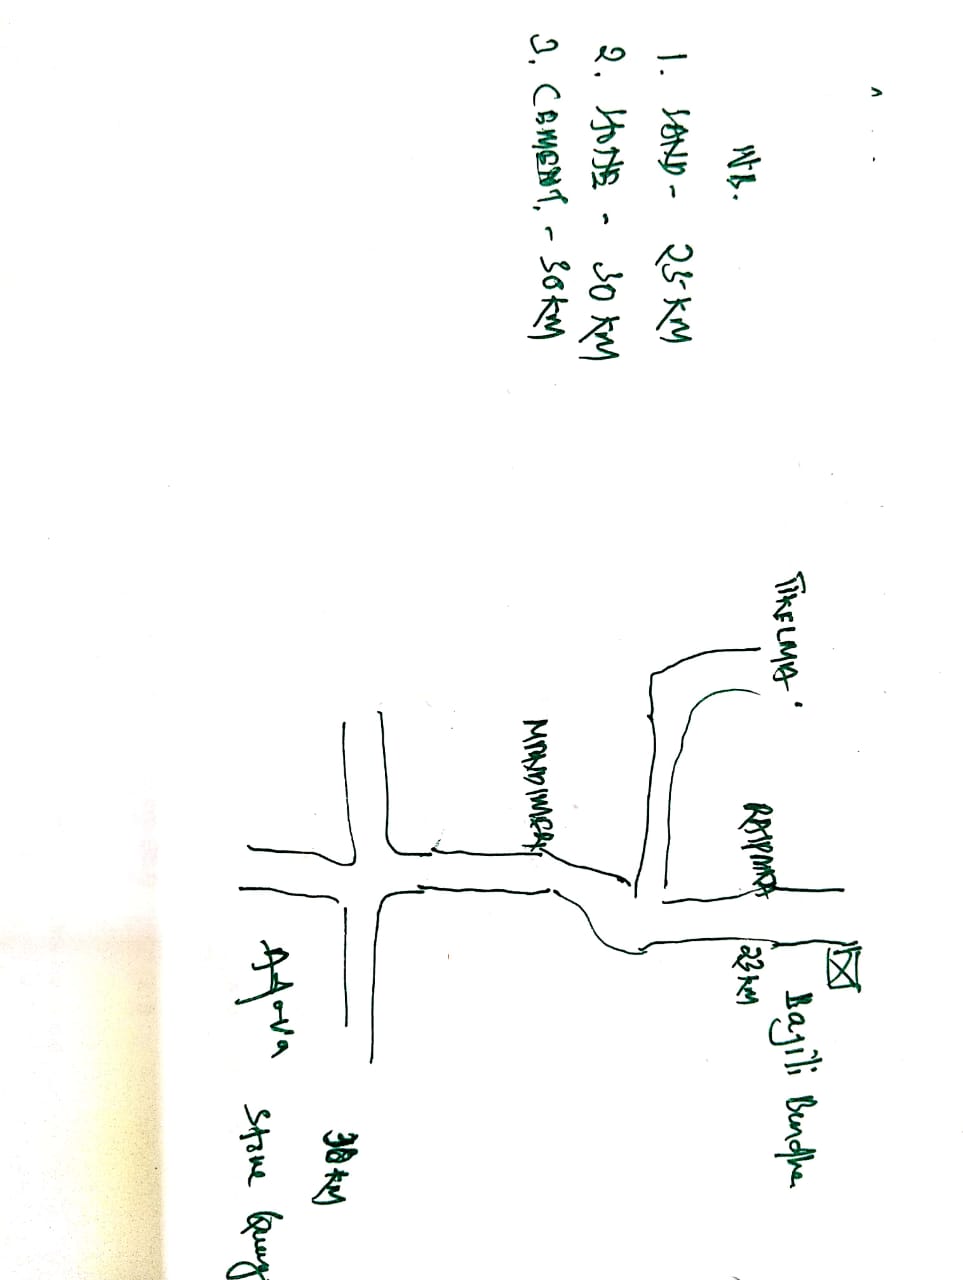 NB.
1. SAND - 25 KM
2. STONE - 30 KM
3. CEMENT. - 30 KM
TIKELMA.
22 KM
Bajili Bandha
30 KM
Stone Quarry